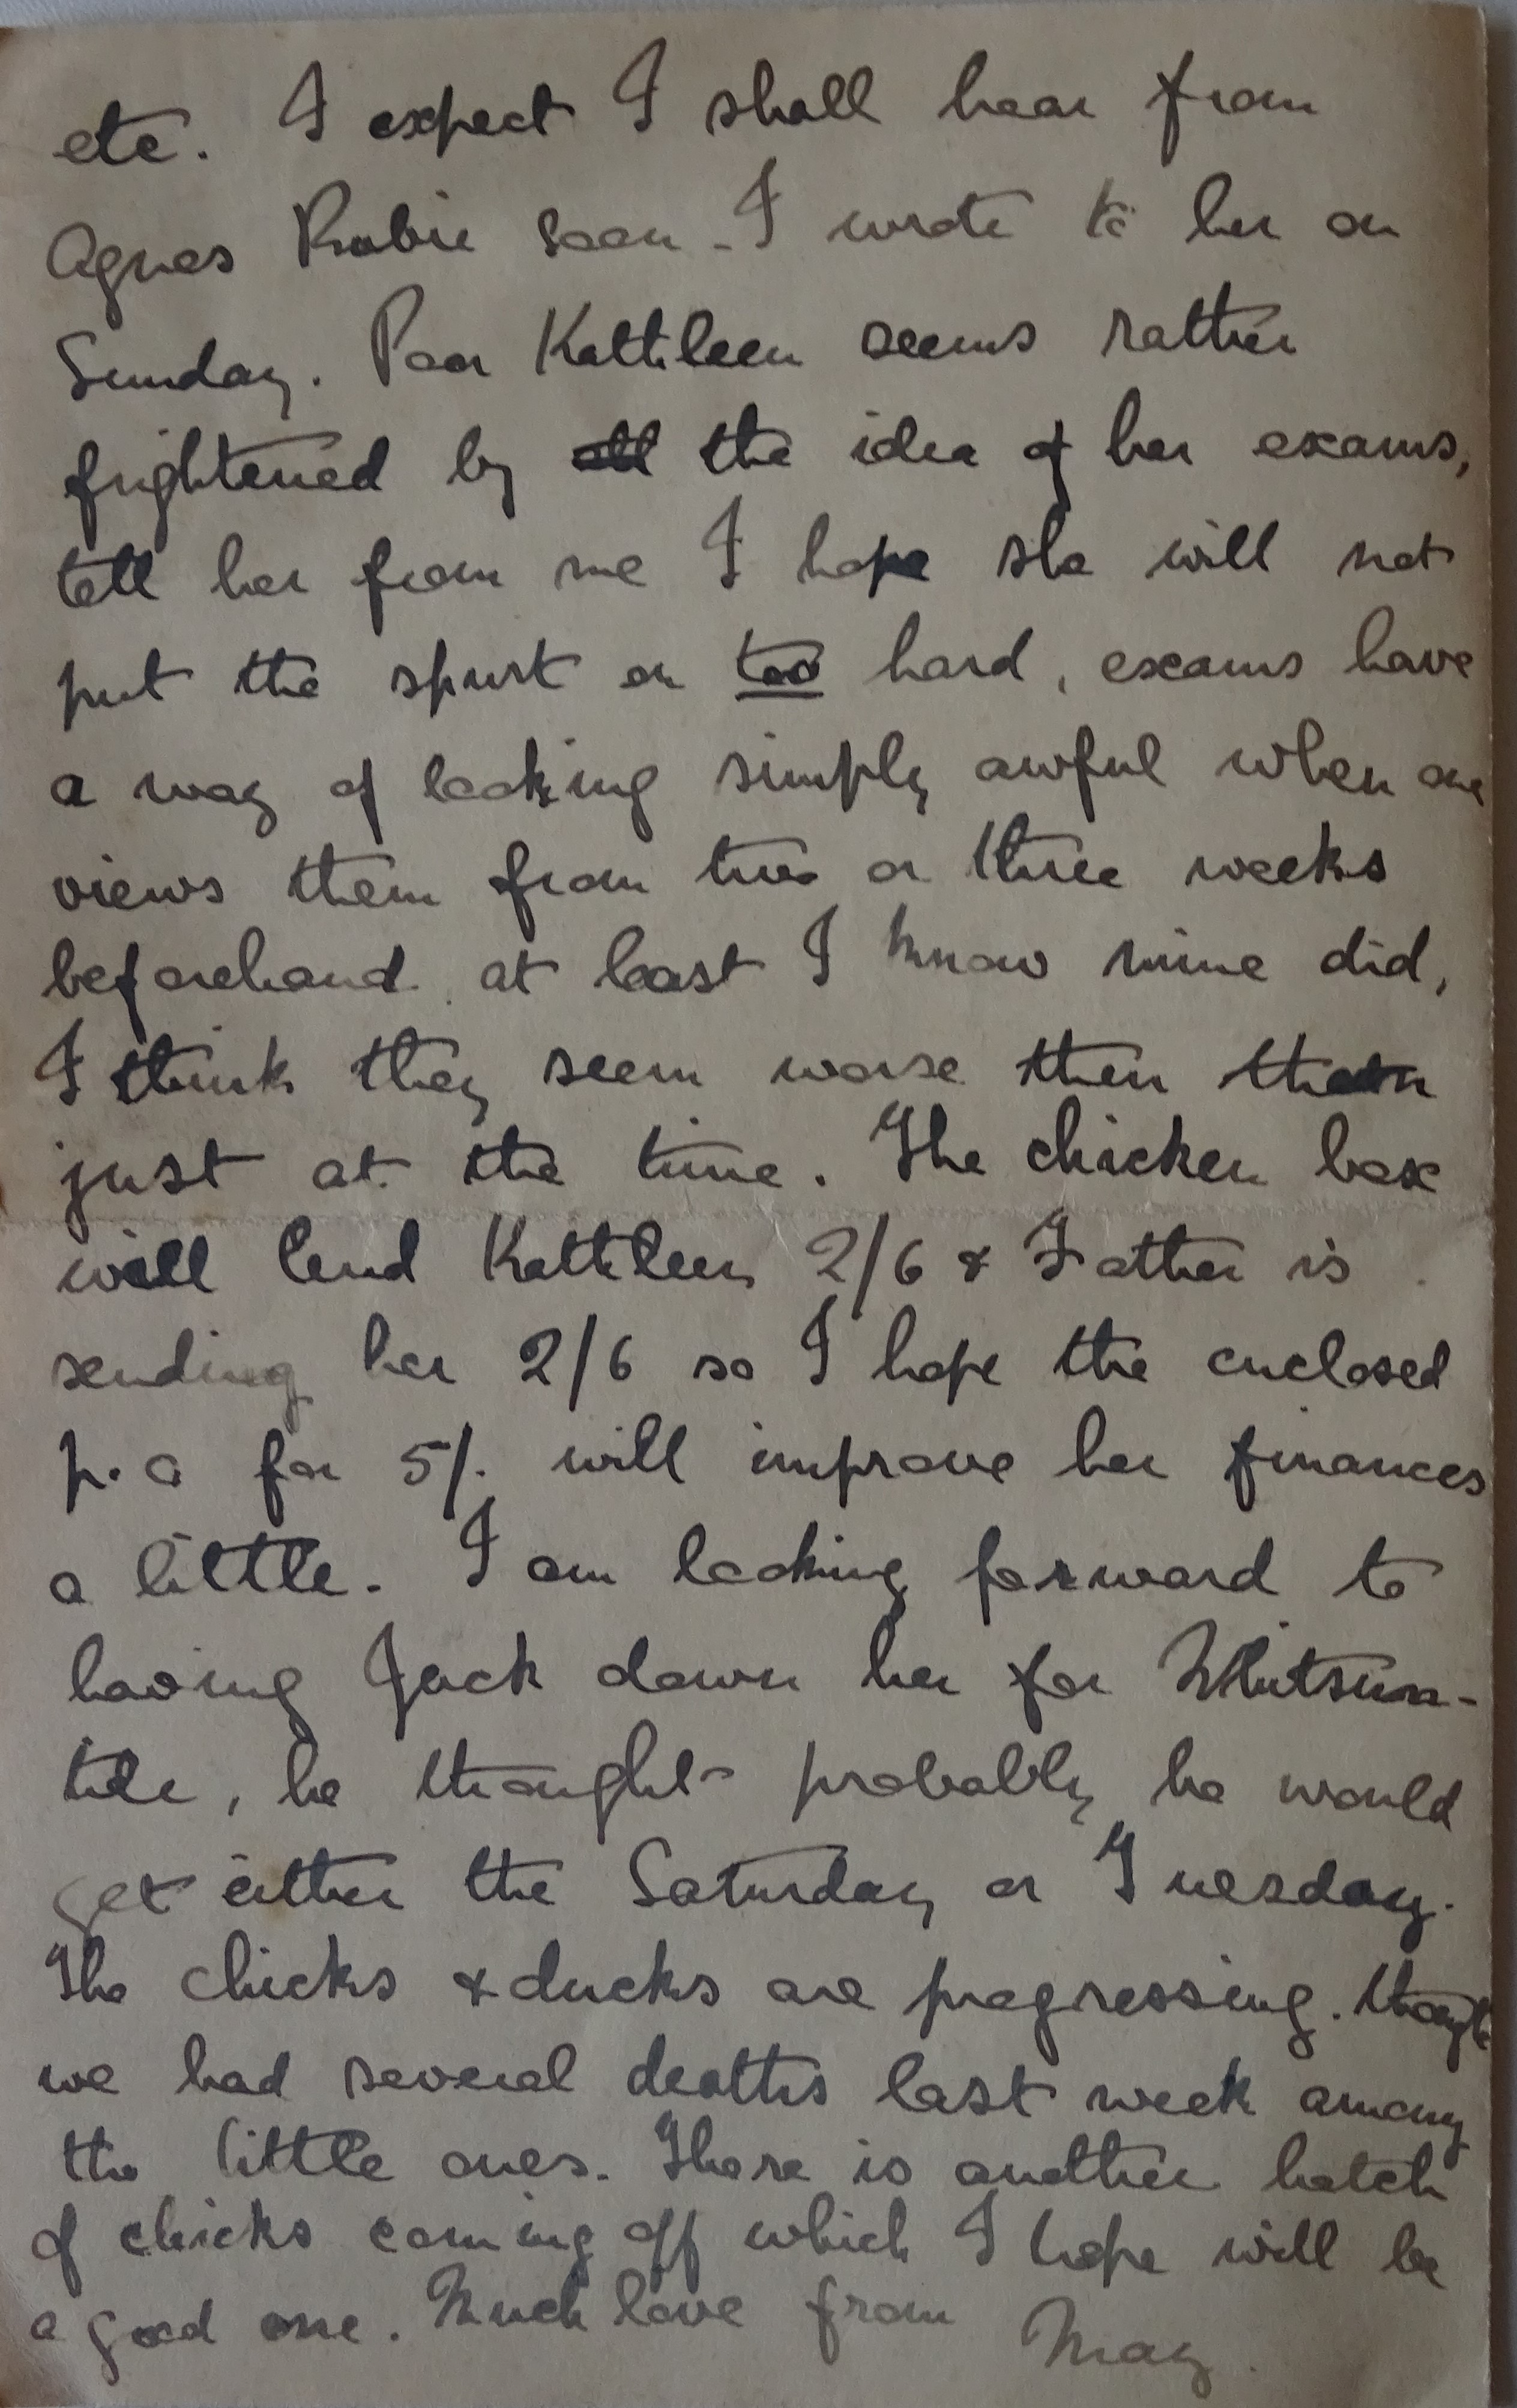 etc. I expect I shall hear from
Agnes Robie soon - I wrote to her on
Sunday. Poor Kathleen seems rather
frightened by all the idea of her exams,
tell her from me I hope she will not
put the spurt on too hard, exams have
a way of looking simply awful when one
views them from two or three weeks
beforehand, at least I know mine did,
I think they seem worse then than
just at the time. The chicken box
will lend Kathleen 2/6 & Father is
sending her 2/6 so I hope the enclosed
p.o for 5/. will improve her finances
a little. I am looking forward to
having Jack down her for Whitsun-
tide, he thought probably he would
get either the Saturday or Tuesday.
The chicks & ducks are progressing. though
we had several deaths last week among
the little ones. There is another hatch
of chicks coming off which I hope will be
a good one. Much love from May.